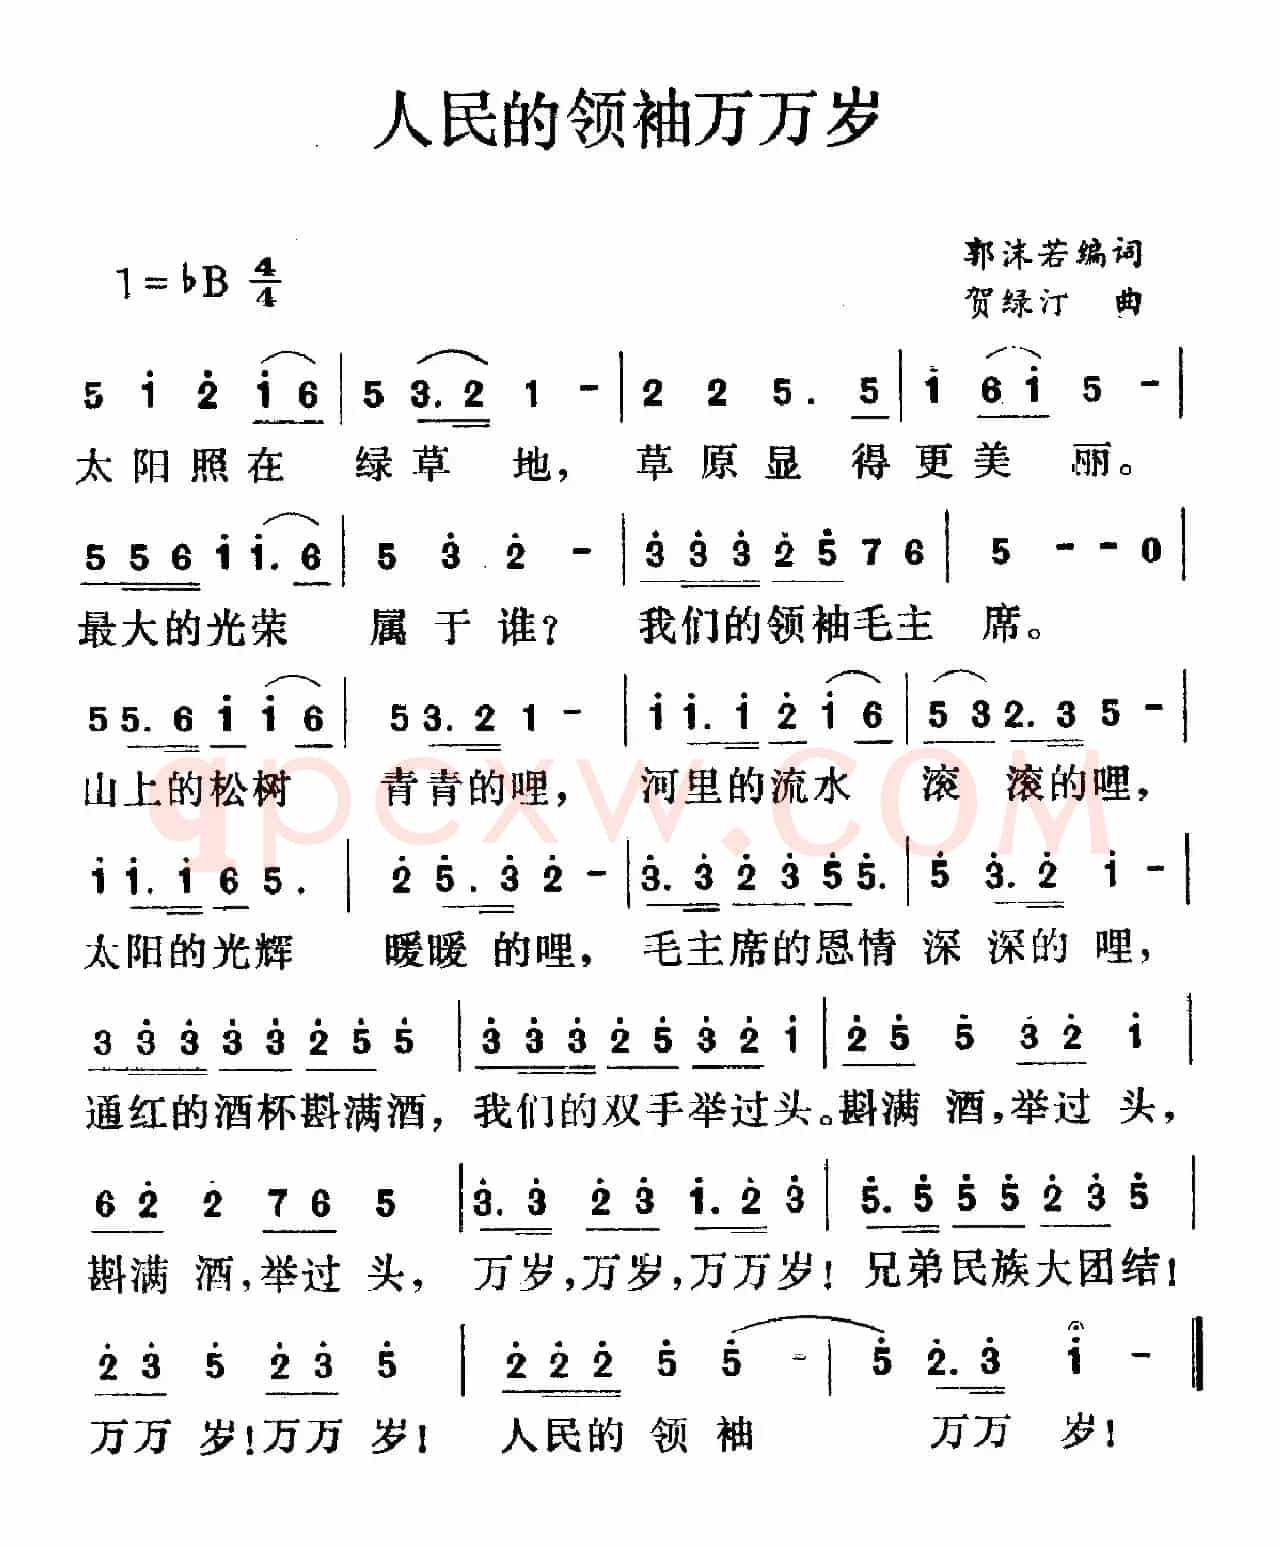 人民的领袖万万岁
郭沫若编词
1=♭B 4/4
贺绿汀 曲
5 1 2 1 6 | 5 3. 2 1 - | 2 2 5. 5 | 1 6 1 5 - |
太阳照在 绿草 地， 草原显 得更美 丽。
5 5 6 1 1. 6 | 5 3 2 - | 3 3 3 2 5 7 6 | 5 - - 0 |
最大的光荣 属于谁？ 我们的领袖毛主 席。
5 5. 6 1 1 6 | 5 3. 2 1 - | 1 1. 1 2 1 6 | 5 3 2. 3 5 - |
山上的松树 青青的哩， 河里的流水 滚 滚的哩，
qpcxw.COM
1 1. 1 6 5. | 2 5. 3 2 - | 3. 3 2 3 5 5. | 5 3. 2 1 - |
太阳的光辉 暖暖的哩， 毛主席的恩情 深 深的哩，
3 3 3 3 3 2 5 5 | 3 3 3 2 5 3 2 1 | 2 5 5 3 2 1 |
通红的酒杯斟满酒， 我们的双手举过头。斟满 酒，举过 头，
6 2 2 7 6 5 | 3. 3 2 3 1. 2 3 | 5. 5 5 5 2 3 5 |
斟满 酒，举过 头， 万岁，万岁，万万岁！兄弟民族大团结！
2 3 5 2 3 5 | 2 2 2 5 5 - | 5 2. 3 1 - ‖
万万 岁！万万 岁！ 人民的 领 袖 万万 岁！